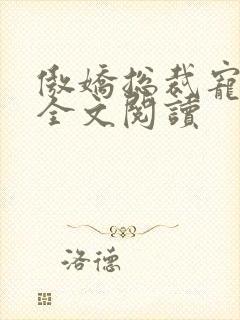 傲嬌總裁寵
全文閱讀
洛德